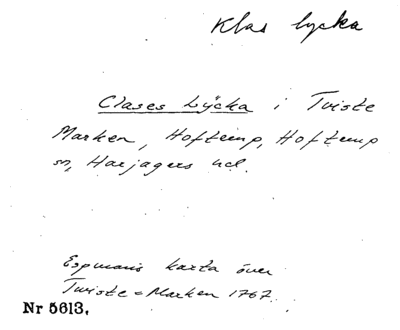 Klas lycka
Clases Lÿcka i Tviste
Marken, Hofterup, Hofterup
sn, Harjagers hd.
Espmans karta över
Twiste-Marken 1767.
Nr 5613.